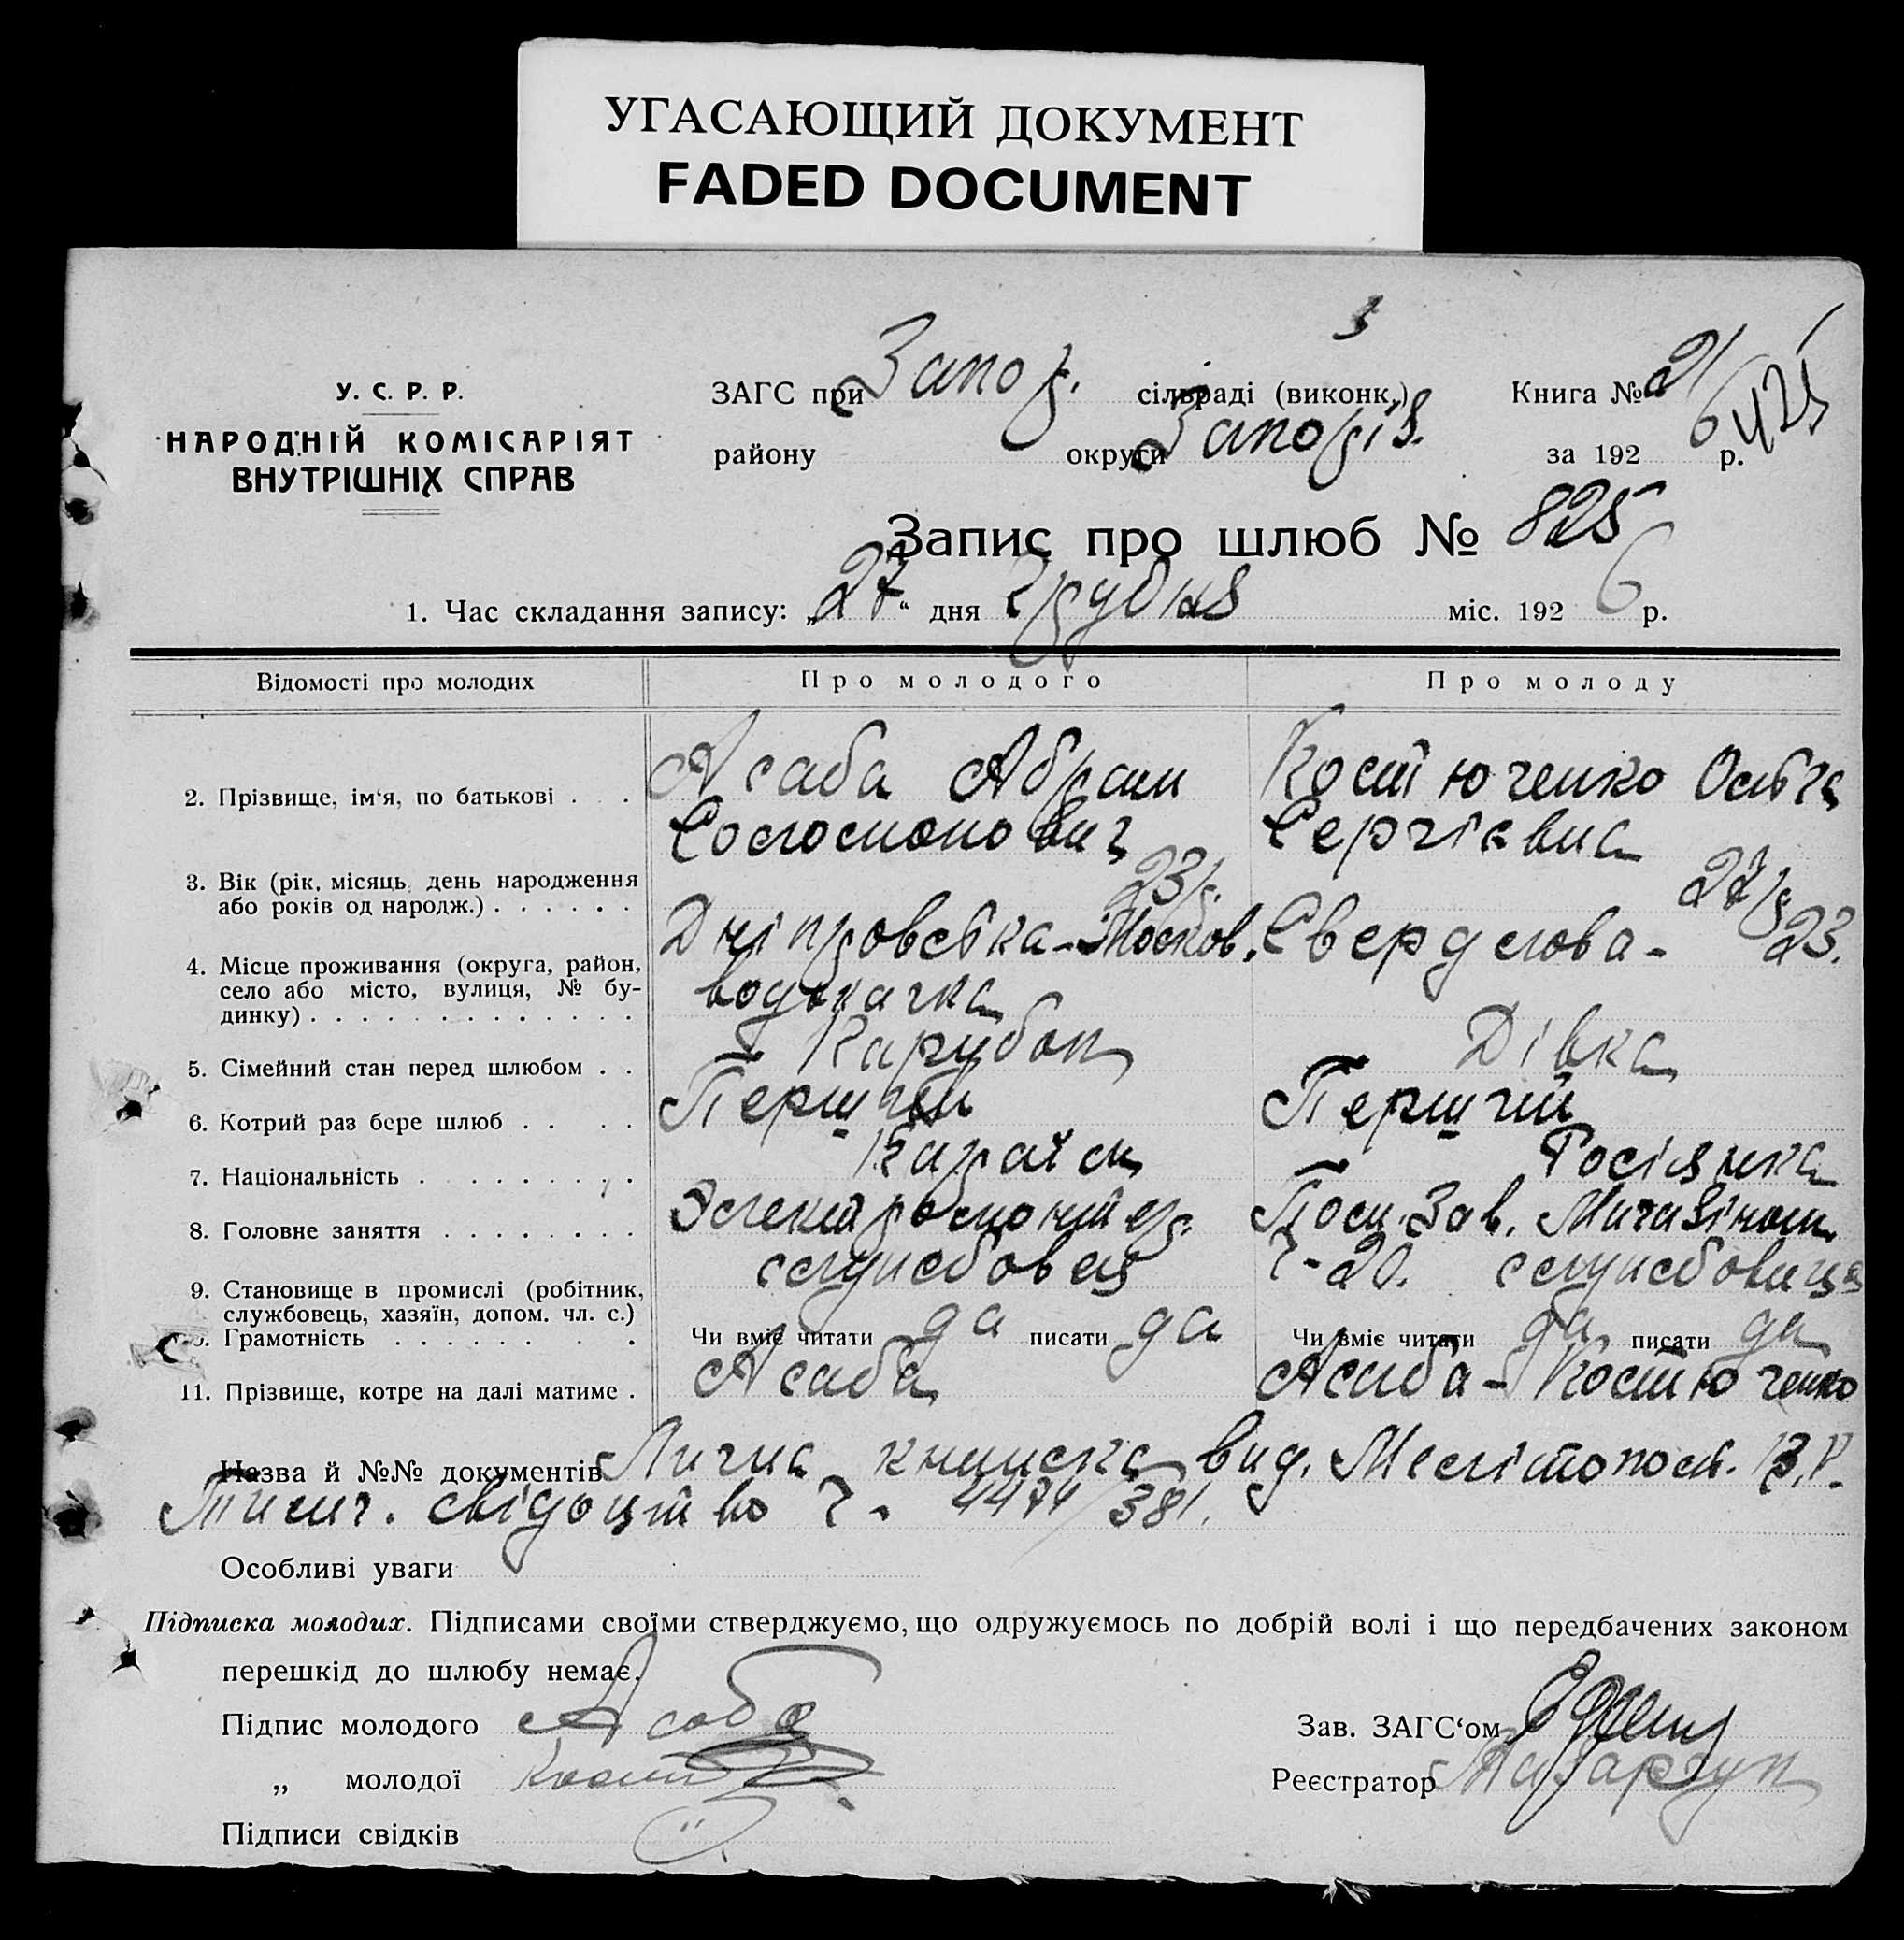 УГАСАЮЩИЙ ДОКУМЕНТ
FADED DOCUMENT
У. С. Р. Р.
НАРОДНІЙ КОМІСАРІЯТ
ВНУТРІШНІХ СПРАВ
ЗАГС при Запор. сільраді (виконк.) Книга № 21
району округи Запоріз. за 1926 р. 425
Запис про шлюб № 825
1. Час складання запису: „27“ дня Грудня міс. 1926 р.
Відомості про молодих Про молодого Про молоду
2. Прізвище, ім‘я, по батькові . . . Асаба Абрам Соломонович Костюченко Сергіївна
3. Вік (рік, місяць день народження або років од народж.) . . . . . . 23 р. 27 р.
4. Місце проживання (округа, район, село або місто, вулиця, № будинку) . . . . . . . . . . . . . Дніпровська-Москов. водокачка Свердлова - 23.
5. Сімейний стан перед шлюбом . . Парубок Дівка
6. Котрий раз бере шлюб . . . . Перший Перший
7. Національність . . . . . . . . Караїм Росіянка
8. Головне заняття . . . . . . . . Электромонтер. Пом. Зав. Магазіном ч-20.
9. Становище в промислі (робітник, службовець, хазяїн, допом. чл. с.) службовець службовиця
Грамотність . . . . . . . . Чи вміє читати да писати да Чи вміє читати да писати да
11. Прізвище, котре на далі матиме . Асаба Асаба-Костюченко
Назва й №№ документів Лична книжка вид. Мелітопол.
Тимч. свідоцтво ч. 4474/381.
Особливі уваги
Підписка молодих. Підписами своїми стверджуємо, що одружуємось по добрій волі і що передбачених законом
перешкід до шлюбу немає.
Підпис молодого Асаба Зав. ЗАГС‘ом
„ молодої Реєстратор
Підписи свідків